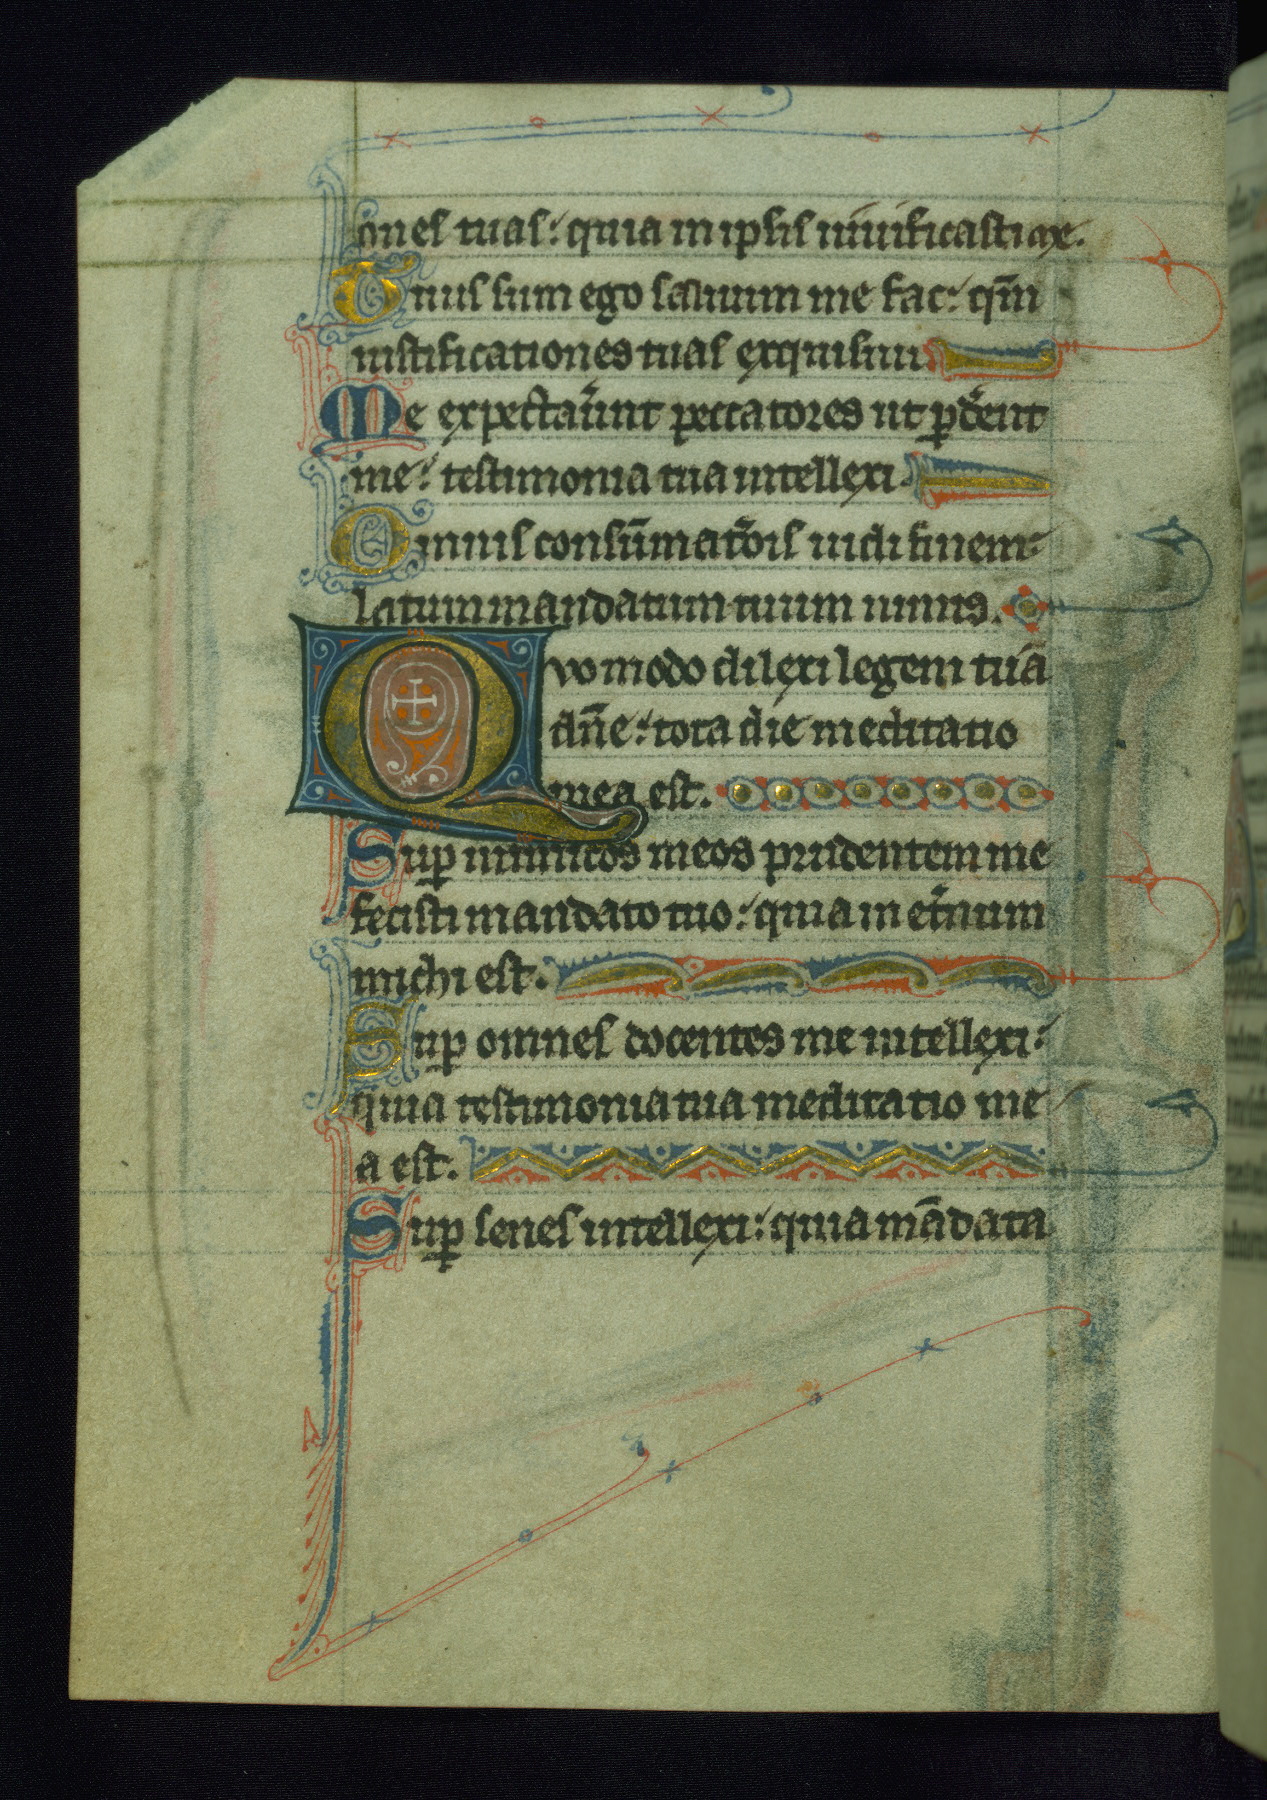 ones tuas: quia in ipsis uiuificasti me.
Tuus sum ego saluum me fac: qm̄
iustificationes tuas exquisiui.
Me expectaũnt peccatores ut ꝑd̃ent
me: testimonia tua intellexi.
Omnis consūmat̃ois uidi finem:
latum mandatum tuum nimis.
Quomodo dilexi legem tuā
dn̄e: tota die meditatio
mea est.
Suꝑ inimicos meos prudentem me
fecisti mandato tuo: quia in et̃num
michi est.
Suꝑ omnes docentes me intellexi:
quia testimonia tua meditatio me
a est.
Suꝑ senes intellexi: quia mādata